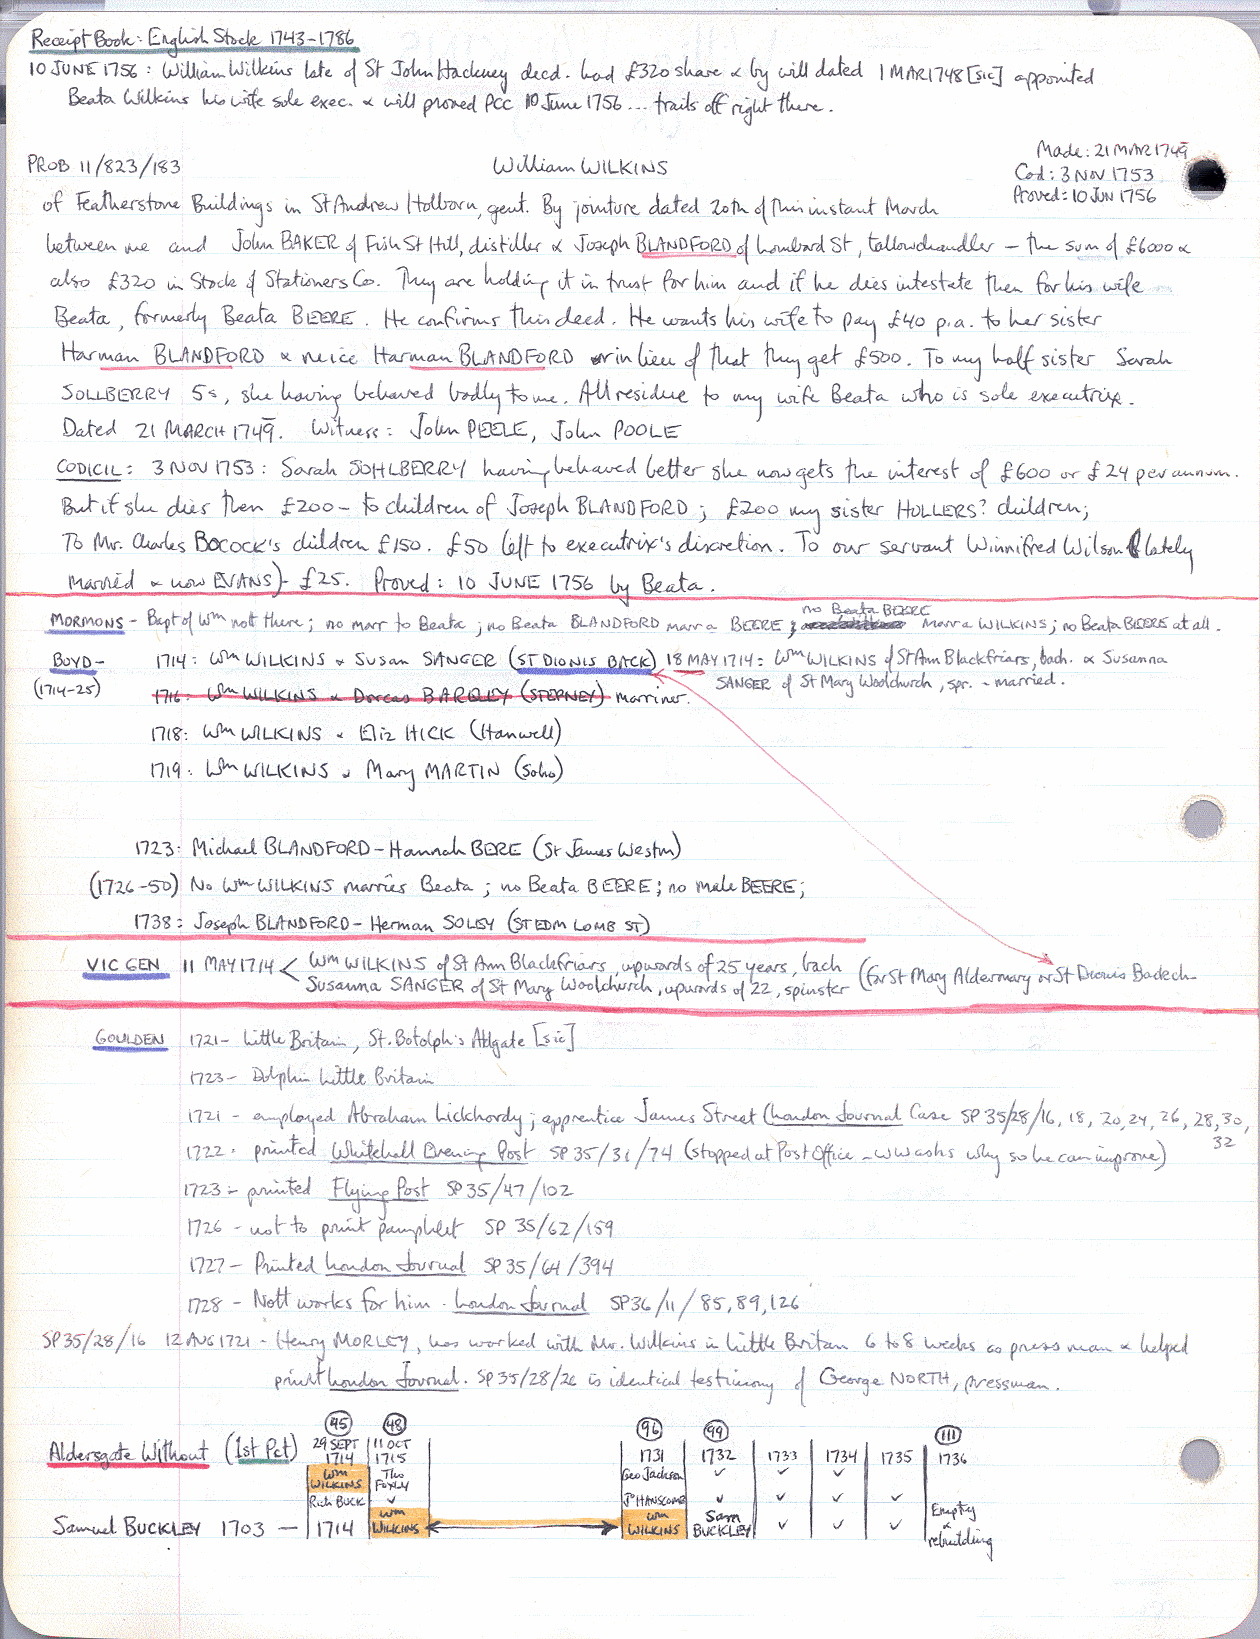 Receipt Book: English Stock 1743-1786
10 JUNE 1756: William Wilkins late of St John Hackney decd. had £320 share & by will dated 1 MAR 1748 [sic] appointed
Beata Wilkins his wife sole exec. & will proved PCC 10 June 1756... trails off right there.
Made: 21 MAR 1749
PROB 11/823/183 William WILKINS
Cod: 3 NOV 1753
Proved: 10 JUN 1756
of Featherstone Buildings in St Andrew Holborn, gent. By jointure dated 20th of this instant March
between me and John BAKER of Fish St Hill, distiller & Joseph BLANDFORD of Lombard St, tallowchandler - the sum of £6000 &
also £320 in Stock of Stationers Co. They are holding it in trust for him and if he dies intestate then for his wife
Beata, formerly Beata BEERE. He confirms this deed. He wants his wife to pay £40 p.a. to her sister
Harman BLANDFORD & neice Harman BLANDFORD or in lieu of that they get £500. To my half sister Sarah
SOLLBERRY 5s, she having behaved badly to me. All residue to my wife Beata who is sole executrix.
Dated 21 MARCH 1749. Witness: John PEELE, John POOLE
CODICIL: 3 NOV 1753: Sarah SOHLBERRY having behaved better she now gets the interest of £600 or £24 per annum.
But if she dies then £200 - to children of Joseph BLANDFORD; £200 my sister HOLLERS? children;
To Mr. Charles BOCOCK's children £150. £50 left to executrix's discretion. To our servant Winnifred Wilson (lately
married & now EVANS) - £25. Proved: 10 JUNE 1756 by Beata.
no Beata BEERE
MORMONS - Bapt of Wm not there; no marr to Beata; no Beata BLANDFORD marr a BEERE; marr a WILKINS; no Beata BEERE at all.
BOYD - 1714: Wm WILKINS & Susan SANGER (ST DIONIS BACK) 18 MAY 1714: Wm WILKINS of St Ann Blackfriars, bach. & Susanna
SANGER of St Mary Woolchurch, spr. - married.
(1714-25) 1716: Wm WILKINS & Dorcas BARCLEY (STEPNEY) marriner.
1718: Wm WILKINS & Eliz HICK (Hanwell)
1719: Wm WILKINS & Mary MARTIN (Soho)
1723: Michael BLANDFORD - Hannah BERE (St James Westm)
(1726-50) No Wm WILKINS marries Beata; no Beata BEERE; no male BEERE;
1738: Joseph BLANDFORD - Herman SOLEY (ST EDM LOMB ST)
VIC GEN 11 MAY 1714 < Wm WILKINS of St Ann Blackfriars, upwards of 25 years, bach (for St Mary Aldermary or St Dionis Badech-
Susanna SANGER of St Mary Woolchurch, upwards of 22, spinster
GOULDEN 1721 - Little Britain, St. Botolph's Aldgate [sic]
1723 - Dolphin Little Britain
1721 - employed Abraham Lickhordy; apprentice James Street (London Journal Case SP 35/28/16, 18, 20, 24, 26, 28, 30,
32
1722 - printed Whitehall Evening Post SP 35/31/74 (stopped at Post Office - WW asks why so he can improve)
1723 - printed Flying Post SP 35/47/102
1726 - not to print pamphlet SP 35/62/159
1727 - Printed London Journal SP 35/64/394
1728 - Nott works for him. London Journal SP36/11/85, 89, 126
SP 35/28/16 12 AUG 1721 - Henry MORLEY, has worked with Mr. Wilkins in Little Britain 6 to 8 weeks as press man & helped
print London Journal. SP 35/28/26 is identical testimony of George NORTH, pressman.
45 48 96 99 111
Aldersgate Without (1st Pct) 29 SEPT 1714 11 OCT 1715 1731 1732 1733 1734 1735 1736
Wm WILKINS Tho FOXLY Geo Jackson ✓ ✓ ✓
Rich BUCK ✓ Jo HANSCOMB ✓ ✓ ✓ ✓
Samuel BUCKLEY 1703 - 1714 Wm WILKINS Wm WILKINS Sam BUCKLEY ✓ ✓ ✓ Empty & rebuilding